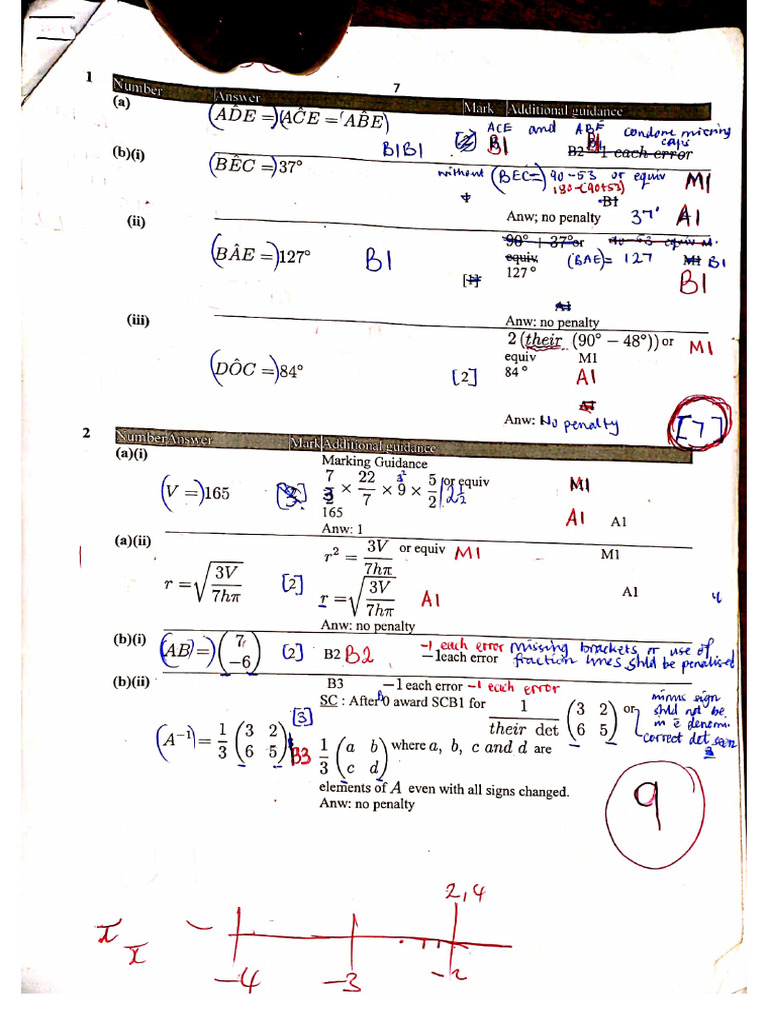 7
1
Number Answer Mark Additional guidance
(a) (AD̂E =)(AĈE = AB̂E) B1B1 [2] ACE and ABE condone missing caps
B1 B1 B2 -1 each error
(b)(i) (BÊC =)37° without (BEC=) 90-53 or equiv M1
180-(90+53)
B1
Anw; no penalty 37° A1
(ii) 90° + 37° or 90-53 equiv M.
(BÂE =)127° B1 equiv. (BAE)= 127 M1 B1
[1] 127° B1
A1
Anw: no penalty
(iii) 2(their (90° − 48°)) or M1
equiv M1
(DÔC =)84° [2] 84° A1
A1
Anw: No penalty [7]
2
Number Answer Mark Additional guidance
(a)(i) Marking Guidance
(V =)165 7/2 × 22/7 × 9 × 5/2 / 2½ or equiv M1
165 A1 A1
Anw: 1
(a)(ii) r² = 3V/7hπ or equiv M1 M1
r = √(3V/7hπ) [2] r = √(3V/7hπ) A1 A1
Anw: no penalty
(b)(i) (AB =) (7 −6) [2] B2 B2 -1 each error missing brackets or use of
−1each error fraction lines shld be penalised
(b)(ii) B3 −1 each error -1 each error
[3] SC : After 0 award SCB1 for 1/their det (3 2 6 5) or minus sign shld not be in denomi. correct det seen
(A⁻¹) = 1/3 (3 2 6 5) B3 1/3 (a b c d) where a, b, c and d are
elements of A even with all signs changed.
Anw: no penalty
9
2,4
x̄
x̄
-4 -3 -2